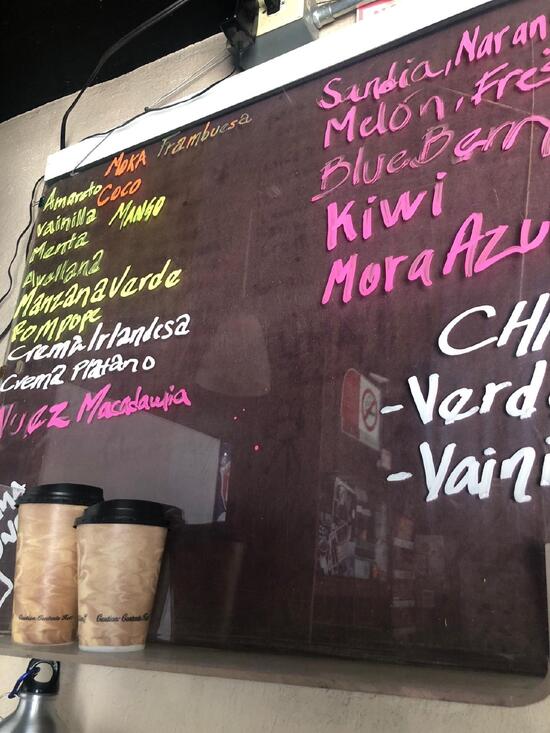 Moka Frambuesa
Amareto Coco
Vainilla Mango
Menta
Avellana
Manzana Verde
Rompope
Crema Irlandesa
Crema Platano
Nuez Macadamia
Sandia, Naran
Melón, Fres
Blue Berr
Kiwi
Mora Azu
CH
- Verd
- Vaini
Caution: Contents Hot
Caution: Contents Hot